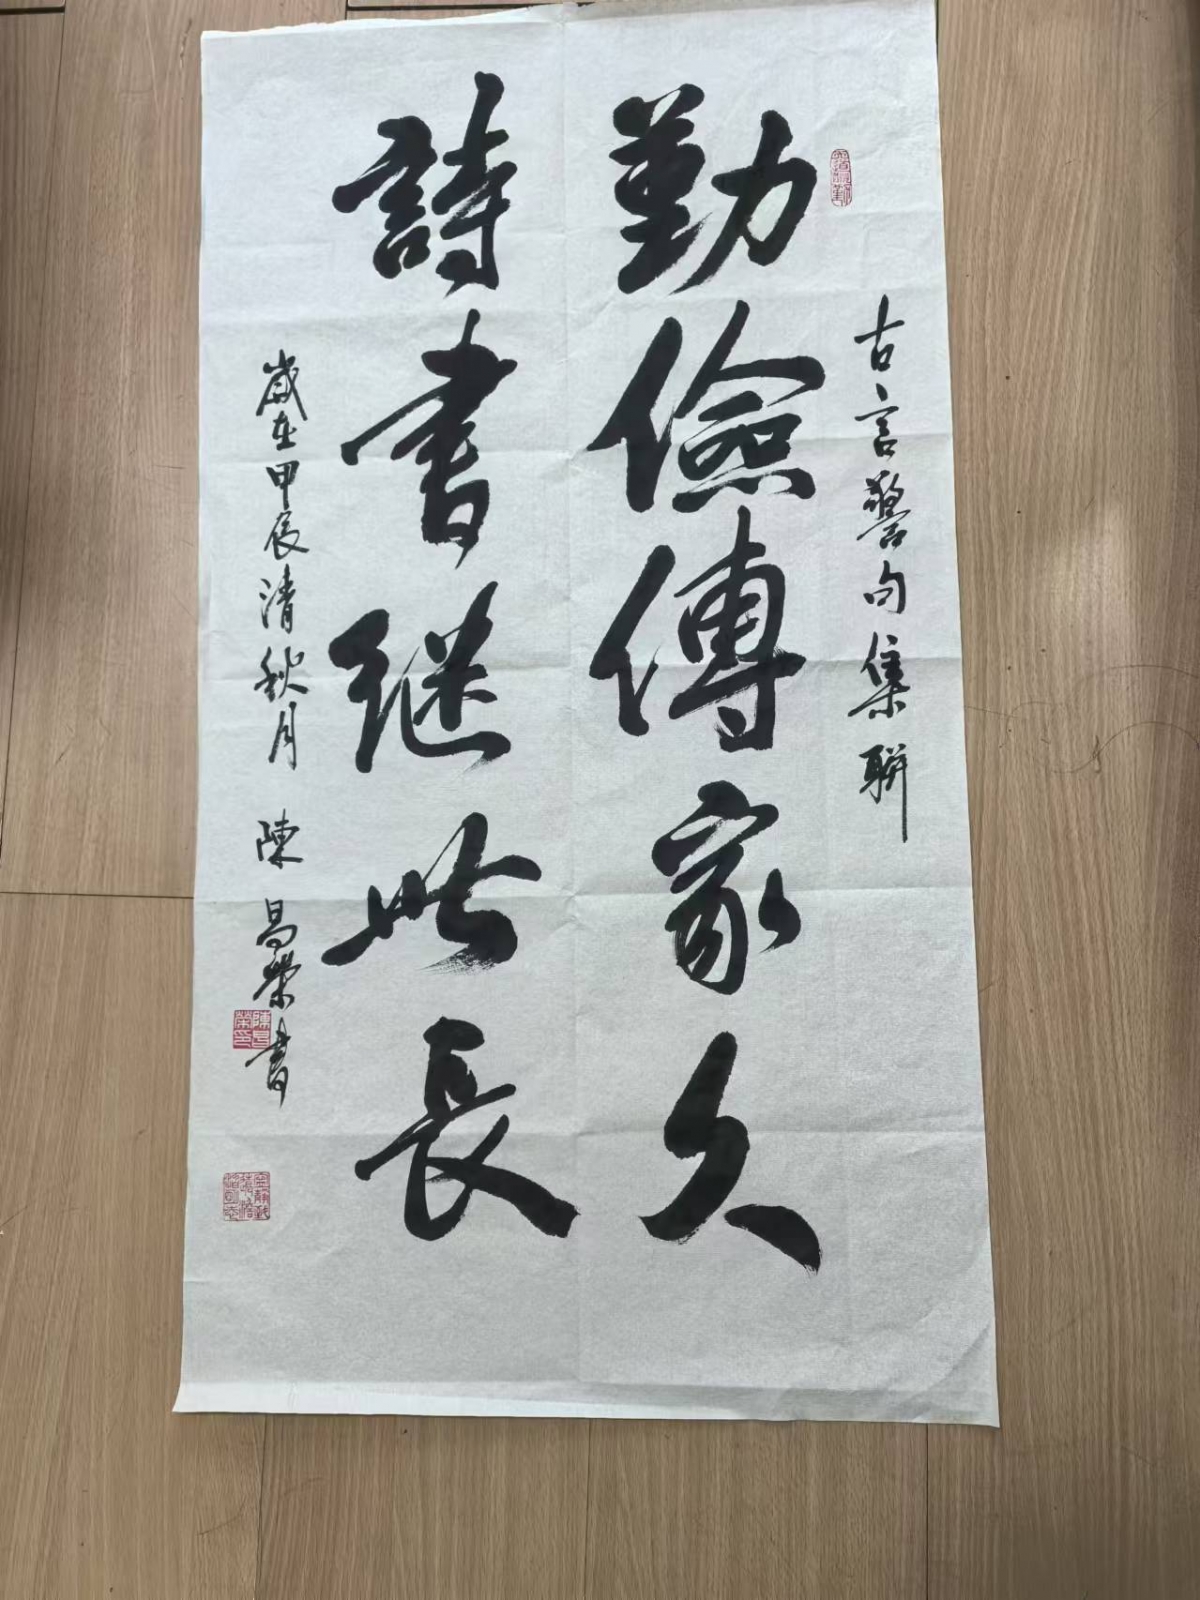 古言警句集聯
勤儉傳家久
詩書继世長
歲在甲辰清秋月 陳昌榮書
陳昌榮印